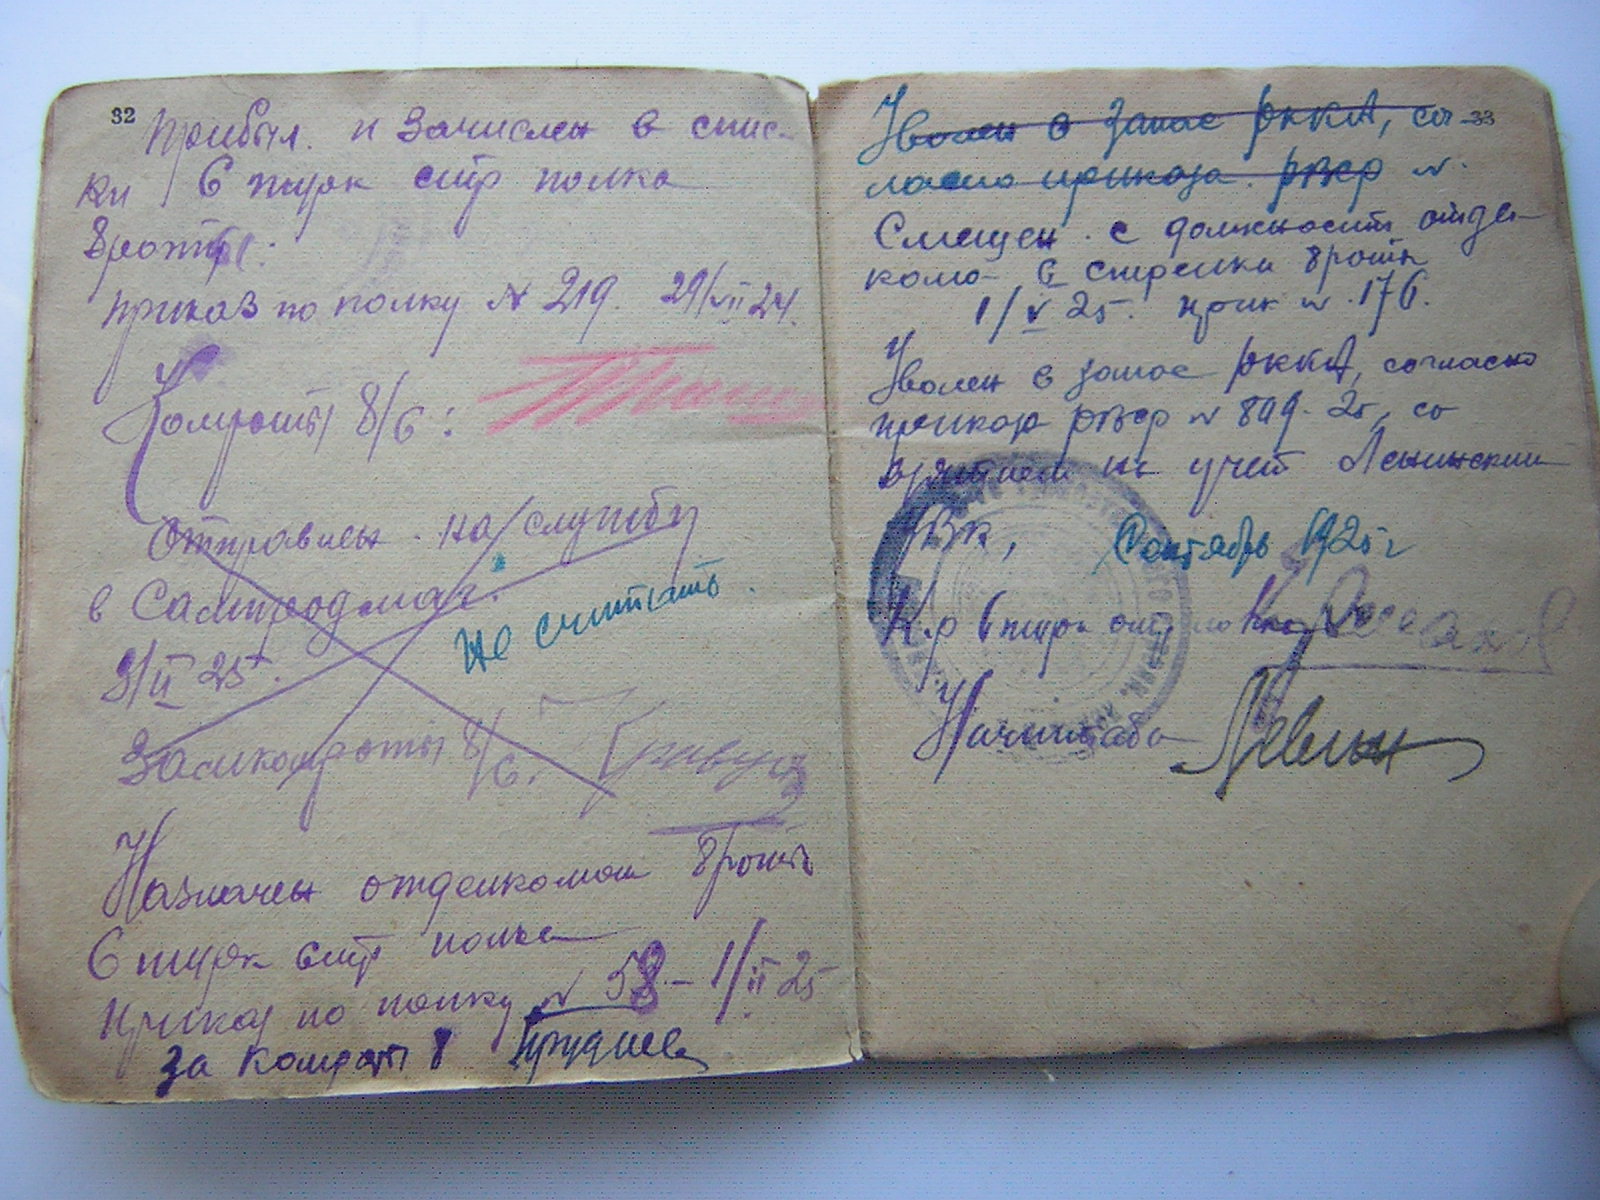 32
Прибыл и зачислен в спис-
ки 6 турк стр полка
8 роты.
приказ по полку № 219. 29/VII 24.
Комроты 8/6:
Отправлен на службу
в Самтредмаг.
9/II 25.
Не считать.
Замкомроты 8/6.
Назначен отделкомом 8 роты
6 турк стр полка
приказ по полку № 58 – 1/II 25
За Комроты 8
33
Уволен в запас РККА, со-
гласно приказа РВСР №
Смещен с должности отдел-
кома в стрелки 8 роты
1/V 25. прик № 176.
Уволен в запас РККА, согласно
приказа РВСР № 899-25, со
взятием на учет Ленинский
ВК, Сентябрь 1925 г
К-р 6 турк стр полка
Начштаба Левин